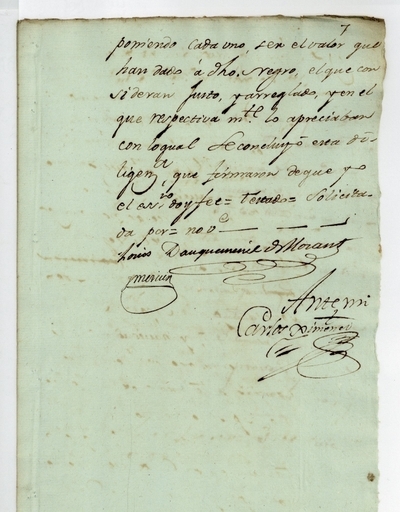 7
poniendo cada uno, ser el valor que
han dado á dho. Negro, el que con
sideran justo, y arreglado, y en el
que respectiva mte. lo apreciaban
con loqual se concluyó esta di
ligena. que firmaron deque yo
el essno. doy fee = Testado = Solicita
da por = no ve
Louis Dauquemenil de Morant
Antemi
Carlos Ximenes